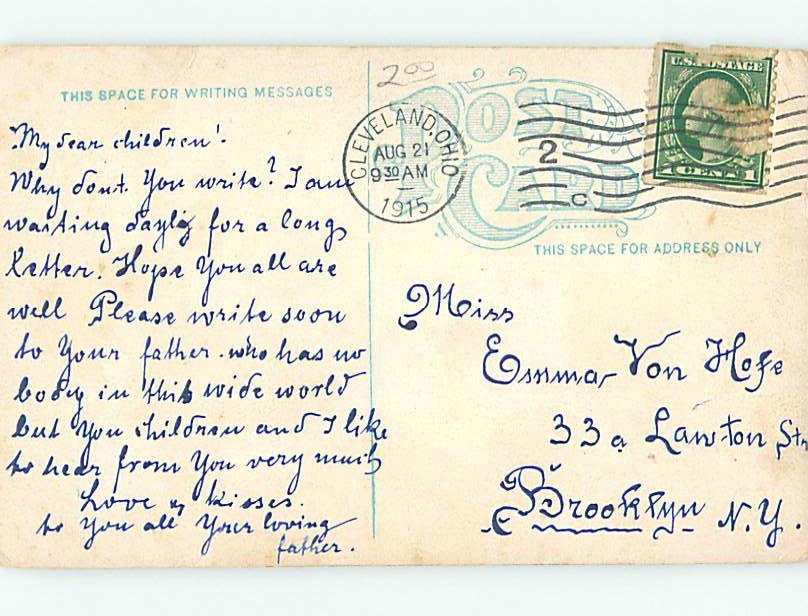 2.00
THIS SPACE FOR WRITING MESSAGES
POST CARD
U.S. POSTAGE
1 CENT 1
CLEVELAND, OHIO
AUG 21
9 30 AM
1915
2
C
THIS SPACE FOR ADDRESS ONLY
My dear children!
Why dont You write? I am
waiting dayly for a long
letter. Hope You all are
well Please write soon
to Your father. who has no
body in this wide world
but You children and I like
to hear from You very much
Love & kisses.
to You all Your loving
father.
Miss
Emma Von Hofe
33a Lawton Str
Brooklyn N.Y.